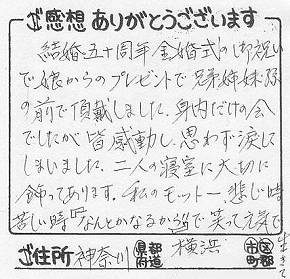 ご感想ありがとうございます
結婚五十周年金婚式のお祝い
で娘からのプレゼントで兄弟姉妹
の前で頂戴しました。身内だけの会
でしたが皆感動し、思わず涙して
しまいました。二人の寝室に大切に
飾ってあります。私のモットー悲しい時
苦しい時「なんとかなるから」で笑って元気で
生きて
ご住所 神奈川 都道府県 横浜 市区町郡